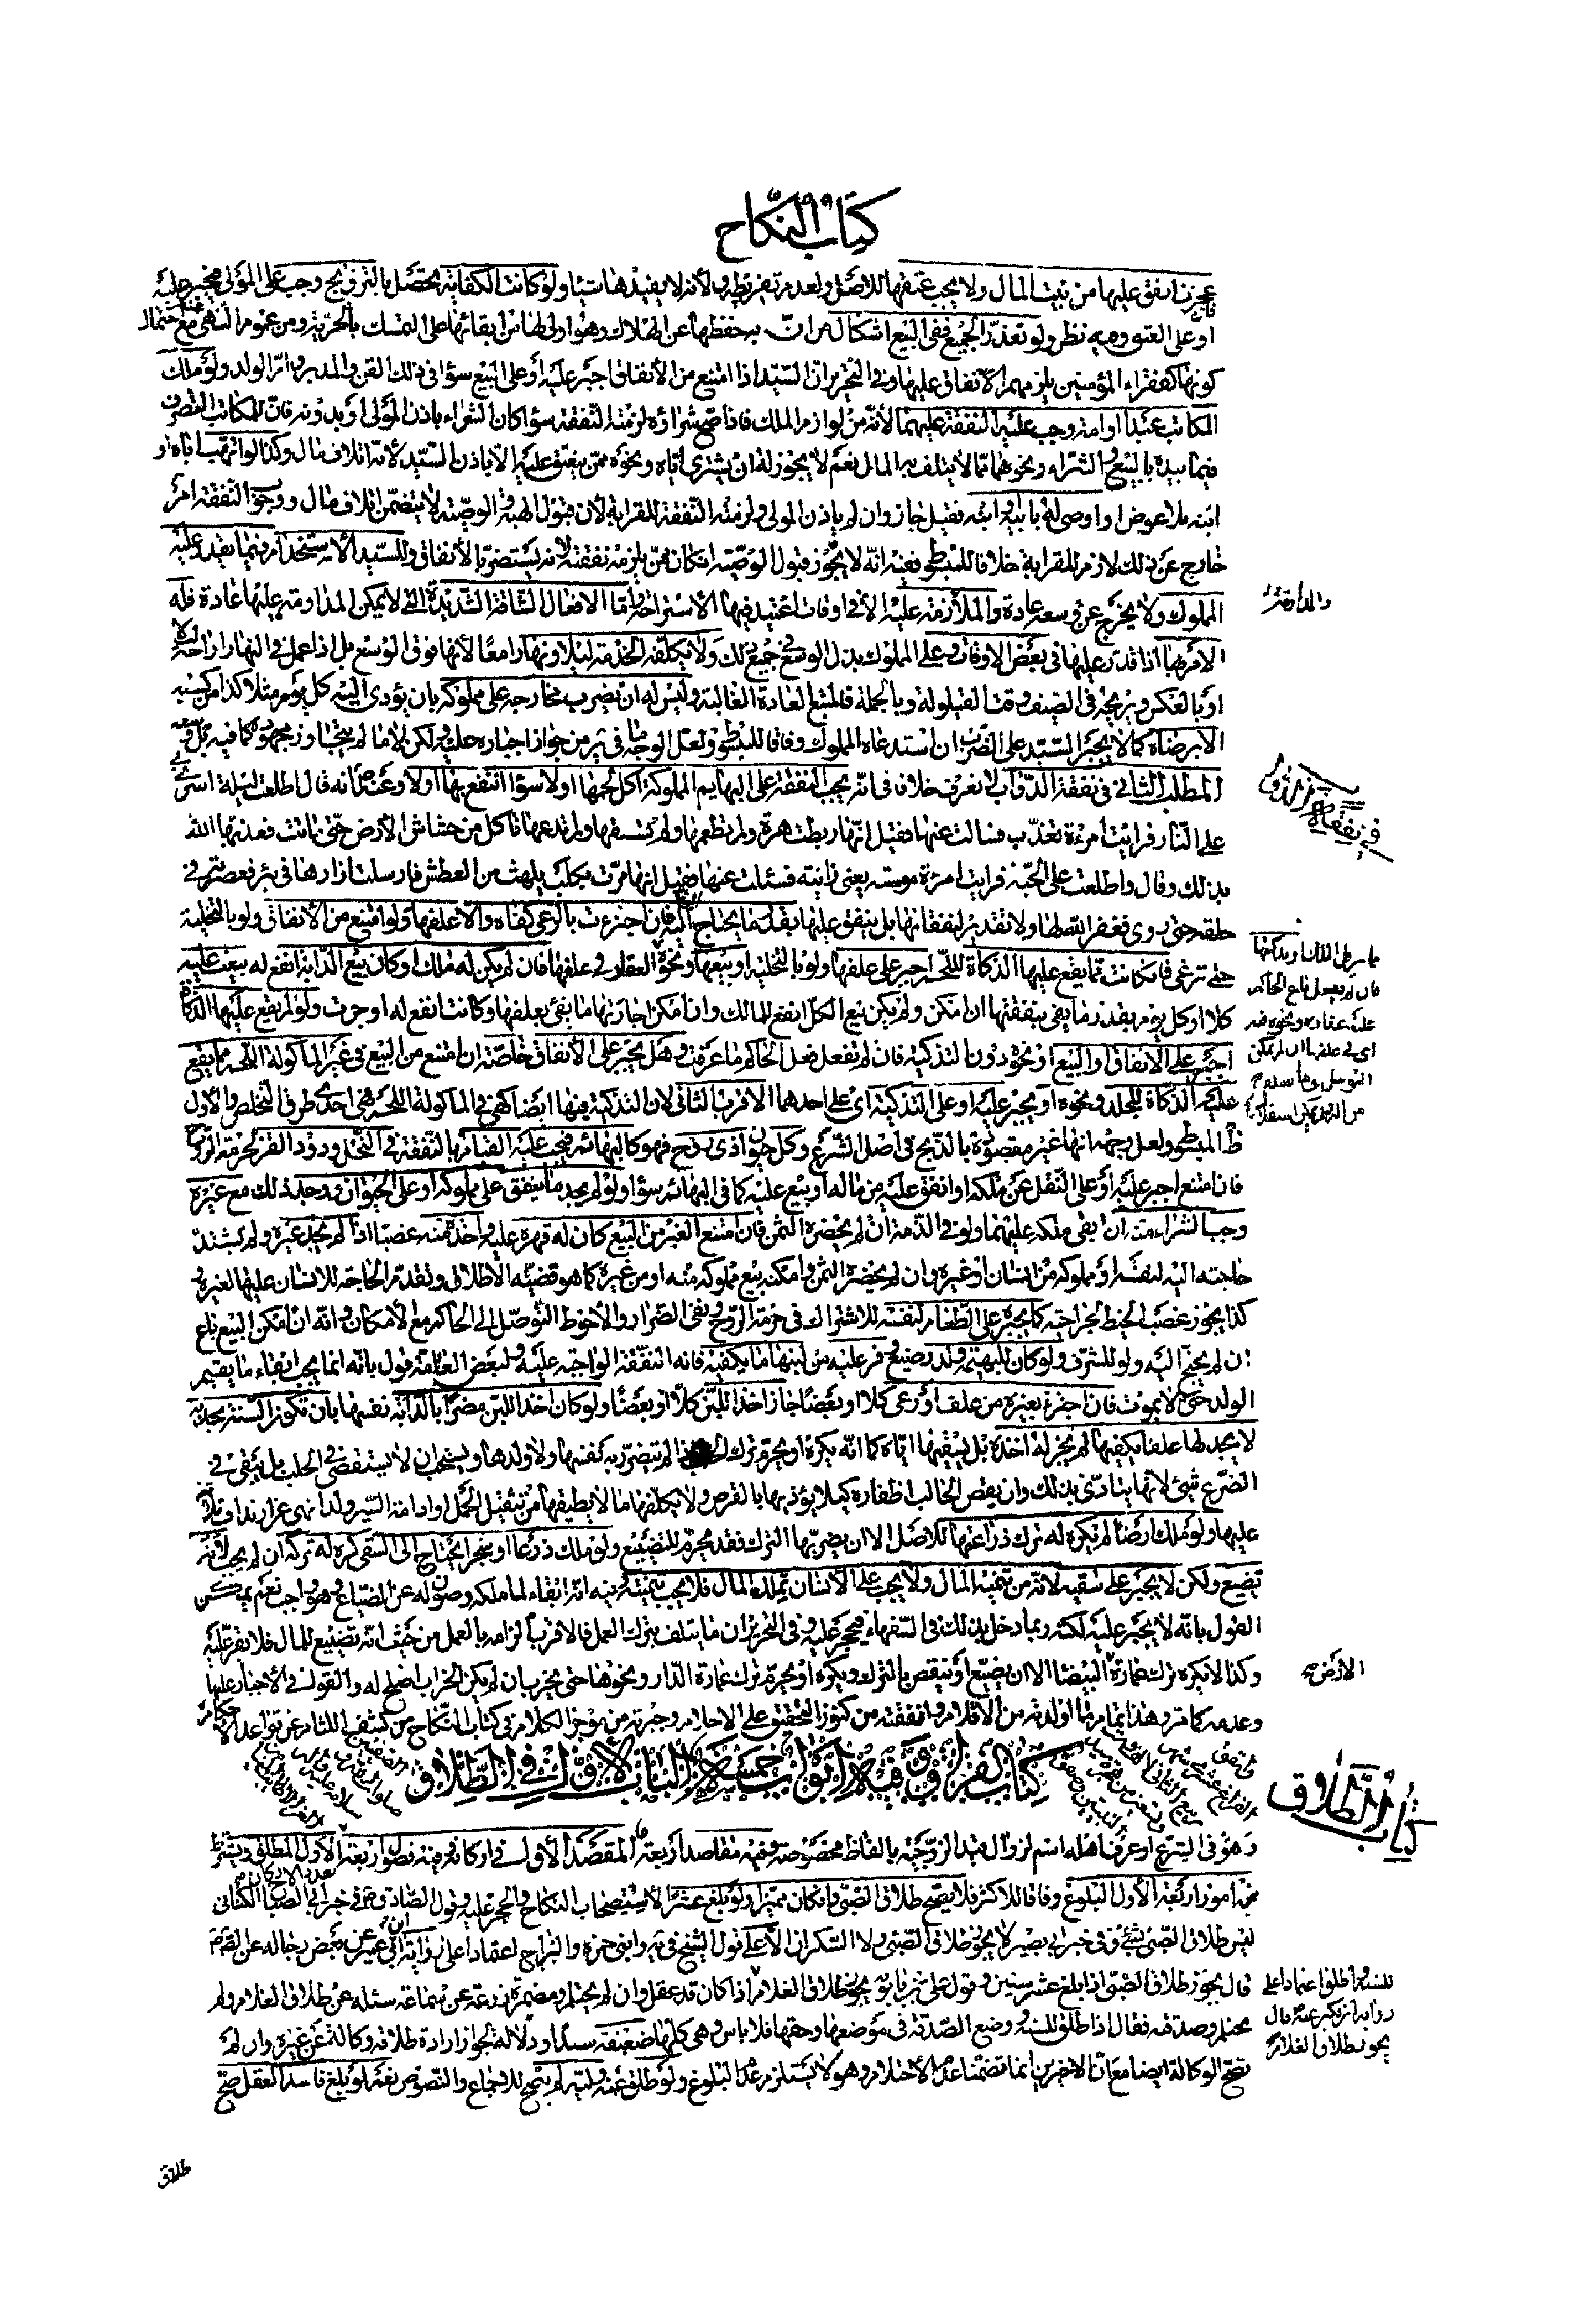 كتاب النكاح
عجزت انفق عليها من بيت المال ولا يجب عتقها للاصل ولعدم تفريطه ولانه لا يفيدها شيئا ولو كانت الكفاية تحصل بالتزويج وجب على المولى فيجبر عليه
او على العتق وفيه نظر ولو تعذر الجميع ففي البيع اشكال من ان به حفظها عن الهلاك وهو اولى لها من ابقائها على التمسك بالحرية ومن عموم النهي مع احتمال
كونها كفقراء المؤمنين يلزمهم الانفاق عليها وفي التحرير ان السيد اذا امتنع من الانفاق اجبر عليه او على البيع سواء في ذلك القن والمدبر وام الولد ولو ملك
المكاتب عبدا او امة وجب عليه النفقة عليهما لانه من لوازم الملك فاذا صح شراؤه لزمته النفقة سواء كان الشراء باذن المولى او بدونه فان للمكاتب التصرف
فيما بيده بالبيع والشراء ونحوهما مما لا يتلف به المال نعم لا يجوز له ان يشتري اباه ونحوه ممن ينعتق عليه الا باذن السيد لانه اتلاف مال وكذا لو اتهب اباه او
ابنه بلا عوض او اوصى له بابيه او ابنه فقبل جاز وان لم ياذن المولى ولزمته النفقة للقرابة لان قبول الهبة والوصية لا يتضمن اتلاف مال ووجوب النفقة امر
خارج عن ذلك لازم للقرابة خلافا للمبسوط ففيه انه لا يجوز قبول الوصية ان كان ممن يلزمه نفقته لانه يستضر بالانفاق وللسيد الاستخدام فيما يقدر عليه
المملوك ولا يخرج عن وسعه عادة والملازمة عليه الا في اوقات اعتيد فيها الاستراحة واما الافعال الشاقة الشديدة التي لا يمكن المداومة عليها عادة فله
الامر بها اذا قدر عليها في بعض الاوقات وعلى المملوك بذل الوسع في جميع ذلك ولا يكلفه الخدمة ليلا ونهارا معا لانها فوق الوسع بل اذا عمل في النهار اراحه ليلا
او بالعكس ويريحه في الصيف وقت القيلولة وبالجملة فالمتبع العادة الغالبة وليس له ان يضرب مخارجة على مملوكه بان يؤدي اليه كل يوم مثلا كذا من كسبه
الا برضاه كما لا يجبر السيد على الضرب ان استدعاه المملوك وفاقا للمبسوط
المطلب الثاني في نفقة الدواب لا نعرف خلافا في انه يجب النفقة على البهايم المملوكة اكل لحمها او لا سواء انتفع بها او لا وعنه ص انه قال اطلعت ليلة اسري بي
على النار فرايت امرءة تعذب فسالت عنها فقيل انها ربطت هرة ولم تطعمها ولم تسقها ولم تدعها تاكل من حشاش الارض حتى ماتت فعذبها الله
بذلك وقال واطلعت على الجنة فرايت امرءة مومسة يعني زانية فسئلت عنها فقيل انها مرت بكلب يلهث من العطش فارسلت ازارها في بئر فعصرته في
حلقه حتى روي فغفر الله لها ولا تقدير لنفقاتها بل ينفق عليها بقدر ما يحتاج اليه فان اجتزت بالرعي كفاه والا علفها ولو امتنع من الانفاق ولو بالتخلية
حتى ترعى فان كانت مما يقع عليها الذكاة للحم اجبر على علفها ولو بالتخلية او بيعها
كلا او كل يوم بقدر ما يفي بنفقتها ان امكن ولم يكن بيع الكل انفع للمالك وان امكن اجارتها بما يفي بعلفها وكانت انفع له اوجرت ولو لم يقع عليها الذكاة
اجبر على الانفاق او البيع او نحوه دون التذكية فان لم يفعل فعل الحاكم ما عرفت وهل يجبر على الانفاق خاصة ان امتنع من البيع في غير الماكولة اللحم مما يقع
عليه الذكاة للجلد ونحوه او يجبر عليه او على التذكية اي على احدهما الاقرب الثاني لان التذكية فيها ايضا كهي في الماكولة اللحم فهي احدى طرق التخلص والاول
ظ المبسوط ولعل وجهه انها غير مقصودة بالذبح في اصل الشرع وكل حيوان ذي روح فهو كالبهائم فيجب عليه القيام بالنفقة في النحل ودود القز لحرمة الروح
فان امتنع اجبر عليه او على النقل عن ملكه او انفق عليه من ماله او بيع عليه كما في البهائم سواء ولو لم يجد ما ينفق على مملوكه او على الحيوان ووجد ذلك مع غيره
وجب الشراء منه ان بقي ملكه عليهما ولو في الذمة ان لم يحضره الثمن فان امتنع الغير من البيع كان له قهره عليه واخذه منه غصبا اذا لم يجد غيره ولم يشتد
حاجته اليه لنفسه او مملوكه من انسان او غيره وان لم يحضره الثمن وامكنه بيع مملوكه منه او من غيره كما هو قضيه الاطلاق وتقدم الحاجة للانسان عليها لغيره
كذا يجوز غصب الخيط لجراحته كما يجبر على الطعام لنفسه للاشتراك في حرمة الروح ونفي الضرار والاحوط التوصل الى الحاكم مع الامكان وانه ان امكن البيع باع
ان لم يحتج اليه ولو للشرف ولو كان للبهيمة ولد رضيع وفر عليه من لبنها ما يكفيه فانه النفقة الواجبة عليه ولبعض العامة قول بانه انما يجب ابقاء ما يقيم
الولد حتى لا يموت فان اجتزء بغيره من علف او رعى كلا او بعضا جاز اخذ اللبن كلا او بعضا ولو كان اخذ اللبن مضرا بالدابة نفسها بان تكون السنة مجدبة
لا يجد لها علفا يكفيها لم يجز له اخذه بل يسقيها اياه كما انه يكره او يحرم ترك الحلب اذا لم يتضرر به نفسها ولا ولدها ويستحب ان لا يستقضي في الحلب بل يبقى في
الضرع شيئ لانها يتاذى بذلك وان يقص الحالب اظفاره كيلا يؤذيها بالقرص ولا يكلفها ما لا يطيقها من تثقيل الحمل او ادامة السير ولذا نهي عن ارتداف ثلثة
عليها ولو ملك ارضا لم يكره له ترك زراعتها للاصل الا ان يضر بها الترك فقد يحرم للتضييع ولو ملك زرعا او شجرا يحتاج الى السقي كره له تركه ان لم يجب لانه
تضييع ولكن لا يجبر على سقيه لانه من تنمية المال ولا يجب على الانسان تملك المال فلا يجب تنميته وفيه انه ابقاء لما ملكه وصون له عن الضياع وهو واجب نعم يمكن
القول بانه لا يجبر عليه لكنه ربما دخل بذلك في السفهاء فيحجر عليه وفي التحرير ان ما يتلف بترك العمل فالاقرب الزامه بالعمل من حيث انه تضييع للمال فلا يقر عليه
وكذا لا يكره ترك عمارة البيضا الا ان يضيع او ينقص بالترك ويكره او يحرم ترك عمارة الدار ونحوها حتى يخرب ان لم يكن الخراب اصلح له والقول في الاجبار عليها
وعدمه كما مر وهذا تمام ما اولدته من الاقلام وانفقته من كنوز التحقيق على الاحلام وحبرته من موجز الكلام في كتاب النكاح من كشف اللثام عن قواعد الاحكام
كتاب الفراق وفيه ابواب خمسة الباب الاول في الطلاق
وهو في الشرع او عرف اهله اسم لزوال قيد الزوجية بالفاظ مخصوصة وفيه مقاصد اربعة المقصد الاول في اركانه وفيه فصول اربعة الاول المطلق ويشترط
فيه امور اربعة الاول البلوغ وفاقا للاكثر فلا يصح طلاق الصبي وان كان مميزا ولو بلغ عشرا لاستصحاب النكاح والحجر عليه وقول الصادق ع في خبر ابي الصباح الكناني
ليس طلاق الصبي بشئ وفي خبر ابي بصير لا يجوز طلاق الصبي ولا السكران الا على قول الشيخ في ية وابني حمزة والبراج اعتمادا على رواية ابن ابي عمير عن بعض رجاله عن الصادق ع
قال يجوز طلاق الصبي اذا بلغ عشر سنين وقول علي بن بابويه يجوز طلاق الغلام اذا كان قد عقل وان لم يحتلم ومضمرة زرعة عن سماعة سئله عن طلاق الغلام ولم
يحتلم وصدقته فقال اذا طلق للسنة ووضع الصدقة في موضعها وحقها فلا باس وهي كلها ضعيفة سندا ودلالة لجواز ارادة طلاقه وكالة عن غيره وان لم
نصحح الوكالة ايضا مع ان الاخيرين انما تضمنتا عدم الاحتلام وهو لا يستلزم عدم البلوغ ولو طلق عنه وليه لم يصح للاجماع والنصوص نعم لو بلغ فاسد العقل صح
في نفقة الدواب
الارض صح
كتاب الطلاق
للسنة اذا طلق اعتمادا على
رواية ابن بكير عنه ع قال
يجوز طلاق الغلام
طلاق